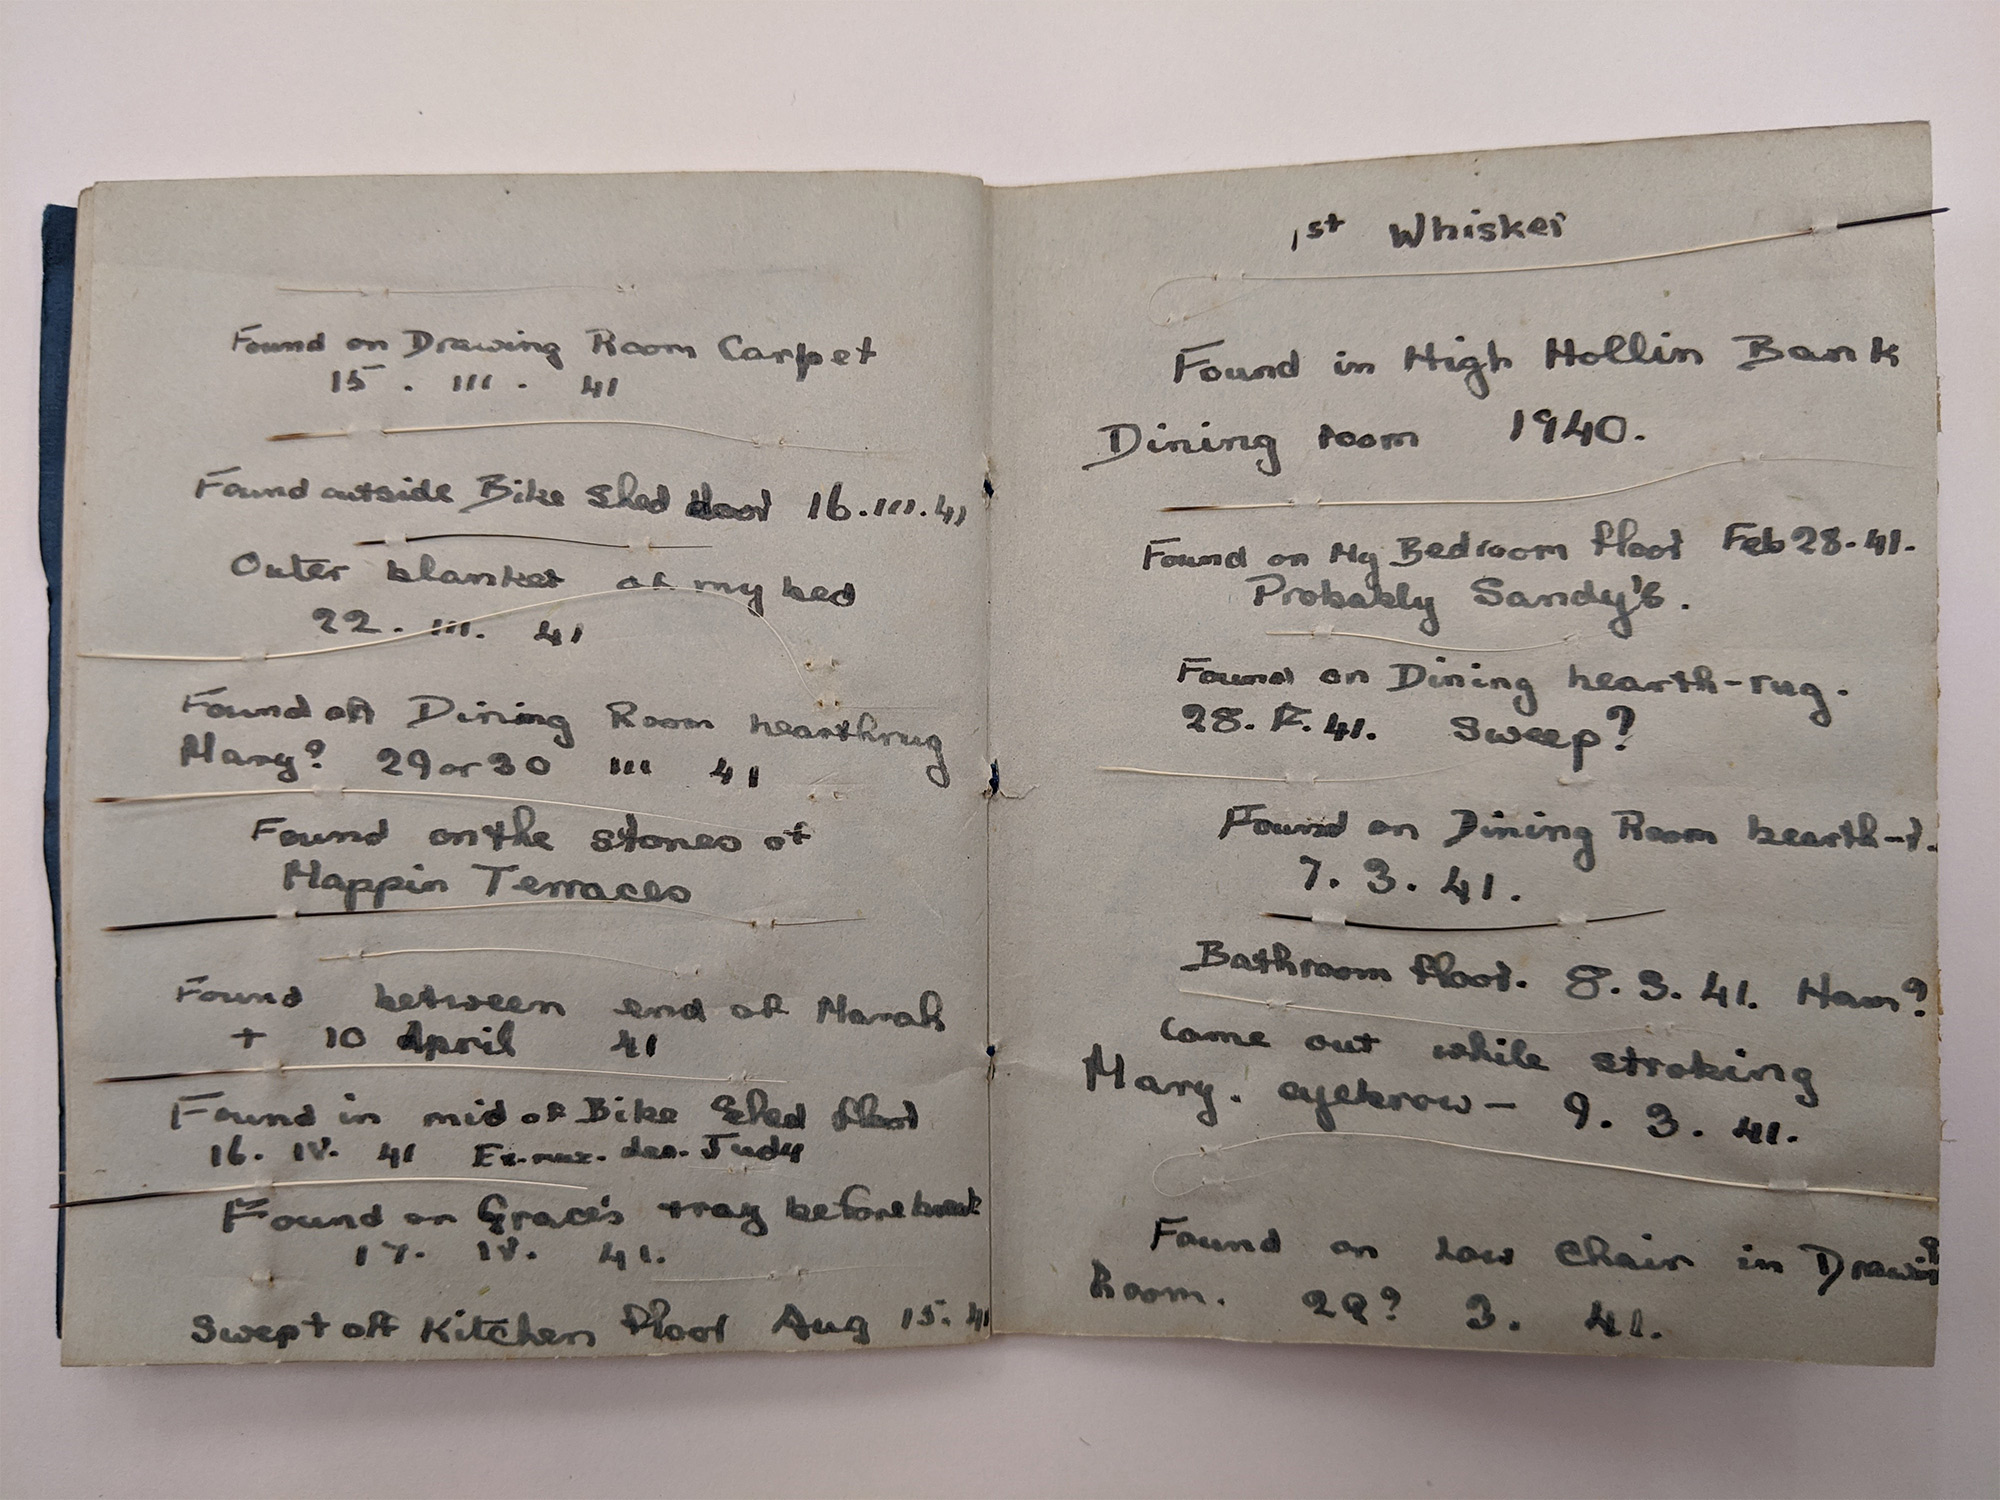 Found on Drawing Room Carpet
15. III. 41
Found outside Bike Shed door 16.III.41
Outer blanket of my bed
22. III. 41
Found off Dining Room hearthrug
Mary? 29 or 30 III 41
Found on the stones of
Mappin Terraces
Found between end of March
+ 10 April 41
Found in mid of Bike Shed floor
16. IV. 41 Judy
Found on Grace's tray before break
17. IV. 41.
Swept off Kitchen floor Aug 15. 41
1st Whisker
Found in High Hollin Bank
Dining room 1940.
Found on My Bedroom floor Feb 28. 41.
Probably Sandy's.
Found on Dining hearth-rug.
28. F. 41. Sweep?
Found on Dining Room hearth-r.
7. 3. 41.
Bathroom floor. 8. 3. 41. Ham?
Came out while stroking
Mary. eyebrow - 9. 3. 41.
Found on low Chair in
Room. 3. 41.